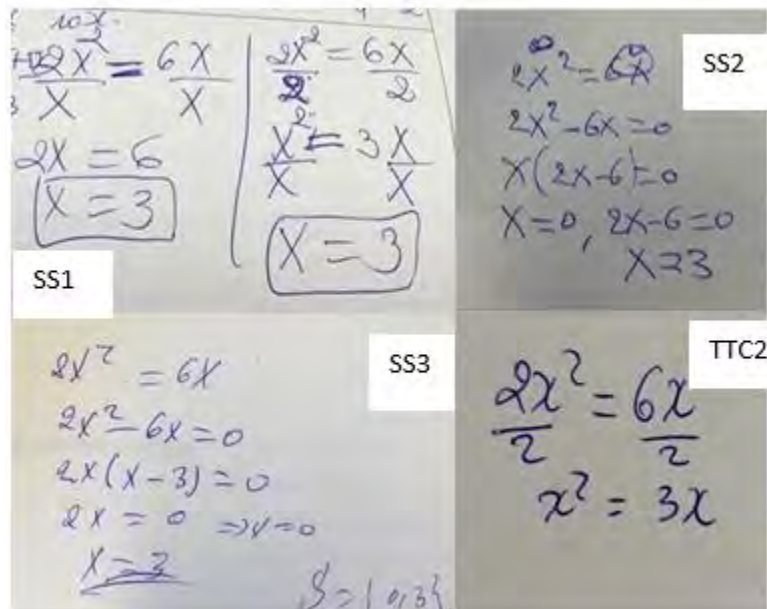 10x
2x² = 6x
x x
2x = 6
x = 3
SS1
2x² = 6x
2 2
x² = 3x
x x
x = 3
SS2
2x² = 6x
2x² - 6x = 0
x(2x-6) = 0
x = 0, 2x-6 = 0
x = 3
SS3
2x² = 6x
2x² - 6x = 0
2x(x-3) = 0
2x = 0 => x = 0
x = 3
S = {0,3}
TTC2
2x² = 6x
2 2
x² = 3x